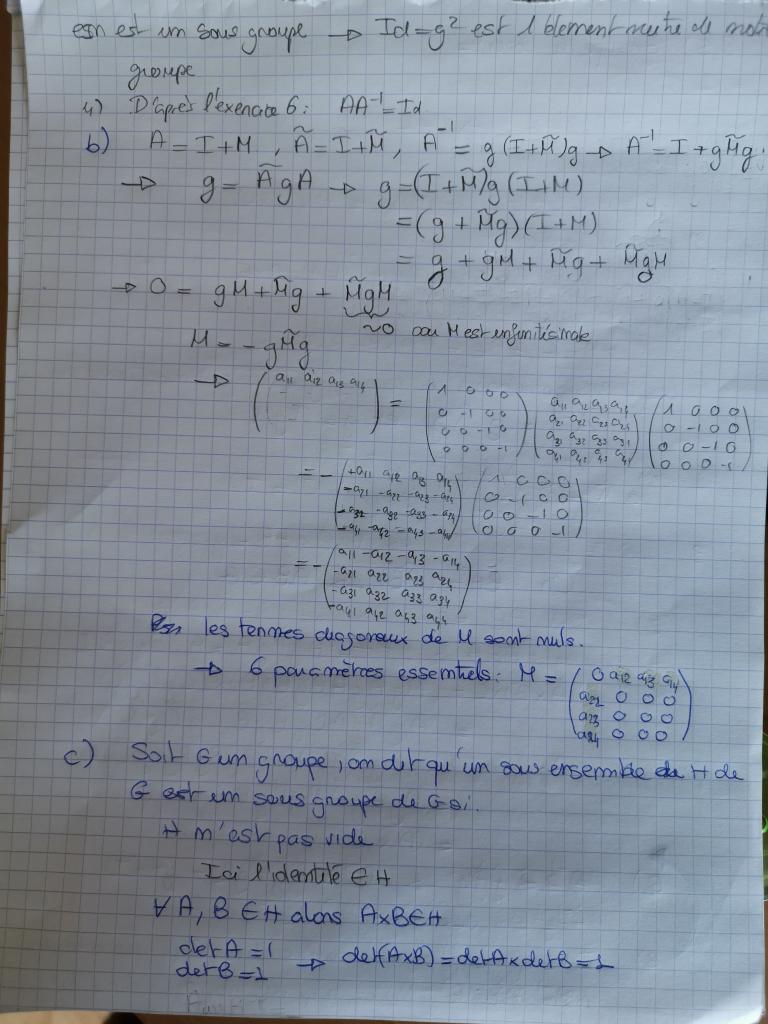 est un sous groupe → Id = g² est l'élement neutre de notre
groupe
4) D'après l'exercice 6 : AA⁻¹ = Id
b) A = I + M , Ã = I + M̃ , A⁻¹ = g (I + M̃) g → A⁻¹ = I + g M̃ g
→ g = Ã g A → g = (I + M̃) g (I + M)
= (g + M̃g) (I + M)
= g + gM + M̃g + M̃gM
→ 0 = gM + M̃g + M̃gM
~0 car M est infinitésimale
M = - g M̃ g
→ ( a₁₁ a₁₂ a₁₃ a₁₄ ) = ( 1 0 0 0 ) ( a₁₁ a₁₂ a₁₃ a₁₄ ) ( 1 0 0 0 )
0 -1 0 0 a₂₁ a₂₂ a₂₃ a₂₄ 0 -1 0 0
0 0 -1 0 a₃₁ a₃₂ a₃₃ a₃₄ 0 0 -1 0
0 0 0 -1 a₄₁ a₄₂ a₄₃ a₄₄ 0 0 0 -1
= - ( +a₁₁ a₁₂ a₁₃ a₁₄ ) ( 1 0 0 0 )
-a₂₁ -a₂₂ -a₂₃ -a₂₄ 0 -1 0 0
-a₃₂ -a₃₂ -a₃₃ -a₃₄ 0 0 -1 0
-a₄₁ -a₄₂ -a₄₃ -a₄₄ 0 0 0 -1
= - ( a₁₁ -a₁₂ -a₁₃ -a₁₄ ) =
-a₂₁ a₂₂ a₂₃ a₂₄
-a₃₁ a₃₂ a₃₃ a₃₄
-a₄₁ a₄₂ a₄₃ a₄₄
les termes diagonaux de M sont nuls.
→ 6 paramètres essentiels : M = ( 0 a₁₂ a₁₃ a₁₄ )
0 0 0
a₂₃ 0 0 0
a₂₄ 0 0 0
c) Soit G un groupe, on dit qu'un sous ensemble H de
G est un sous groupe de G si.
H n'est pas vide
Ici l'identité ∈ H
∀ A, B ∈ H alors A×B∈H
det A = 1
det B = 1 → det(A×B) = detA × detB = 1